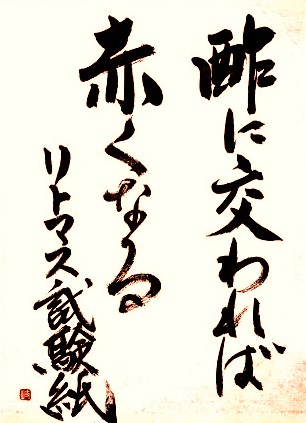 酢に交われば
赤くなる
リトマス試験紙